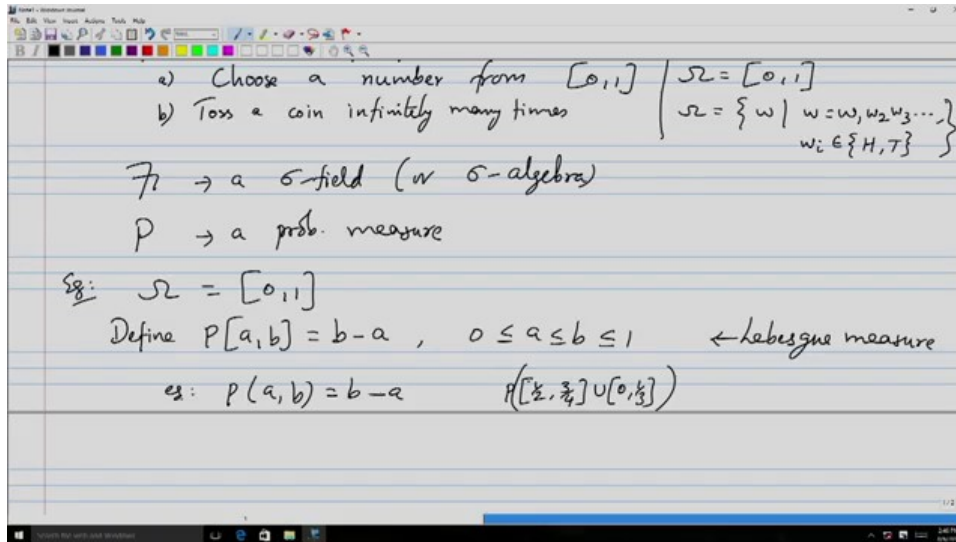 File Edit View Insert Actions Tools Help
a) Choose a number from [0,1] | Ω = [0,1]
b) Toss a coin infinitely many times | Ω = { w | w = w₁w₂w₃..., wᵢ ∈ {H,T} }
F → a σ-field (or σ-algebra)
P → a prob. measure
Eg: Ω = [0,1]
Define P[a,b] = b-a , 0 ≤ a ≤ b ≤ 1 ← Lebesgue measure
eg: P(a,b) = b-a P([½, ¾] ∪ [0,⅓])